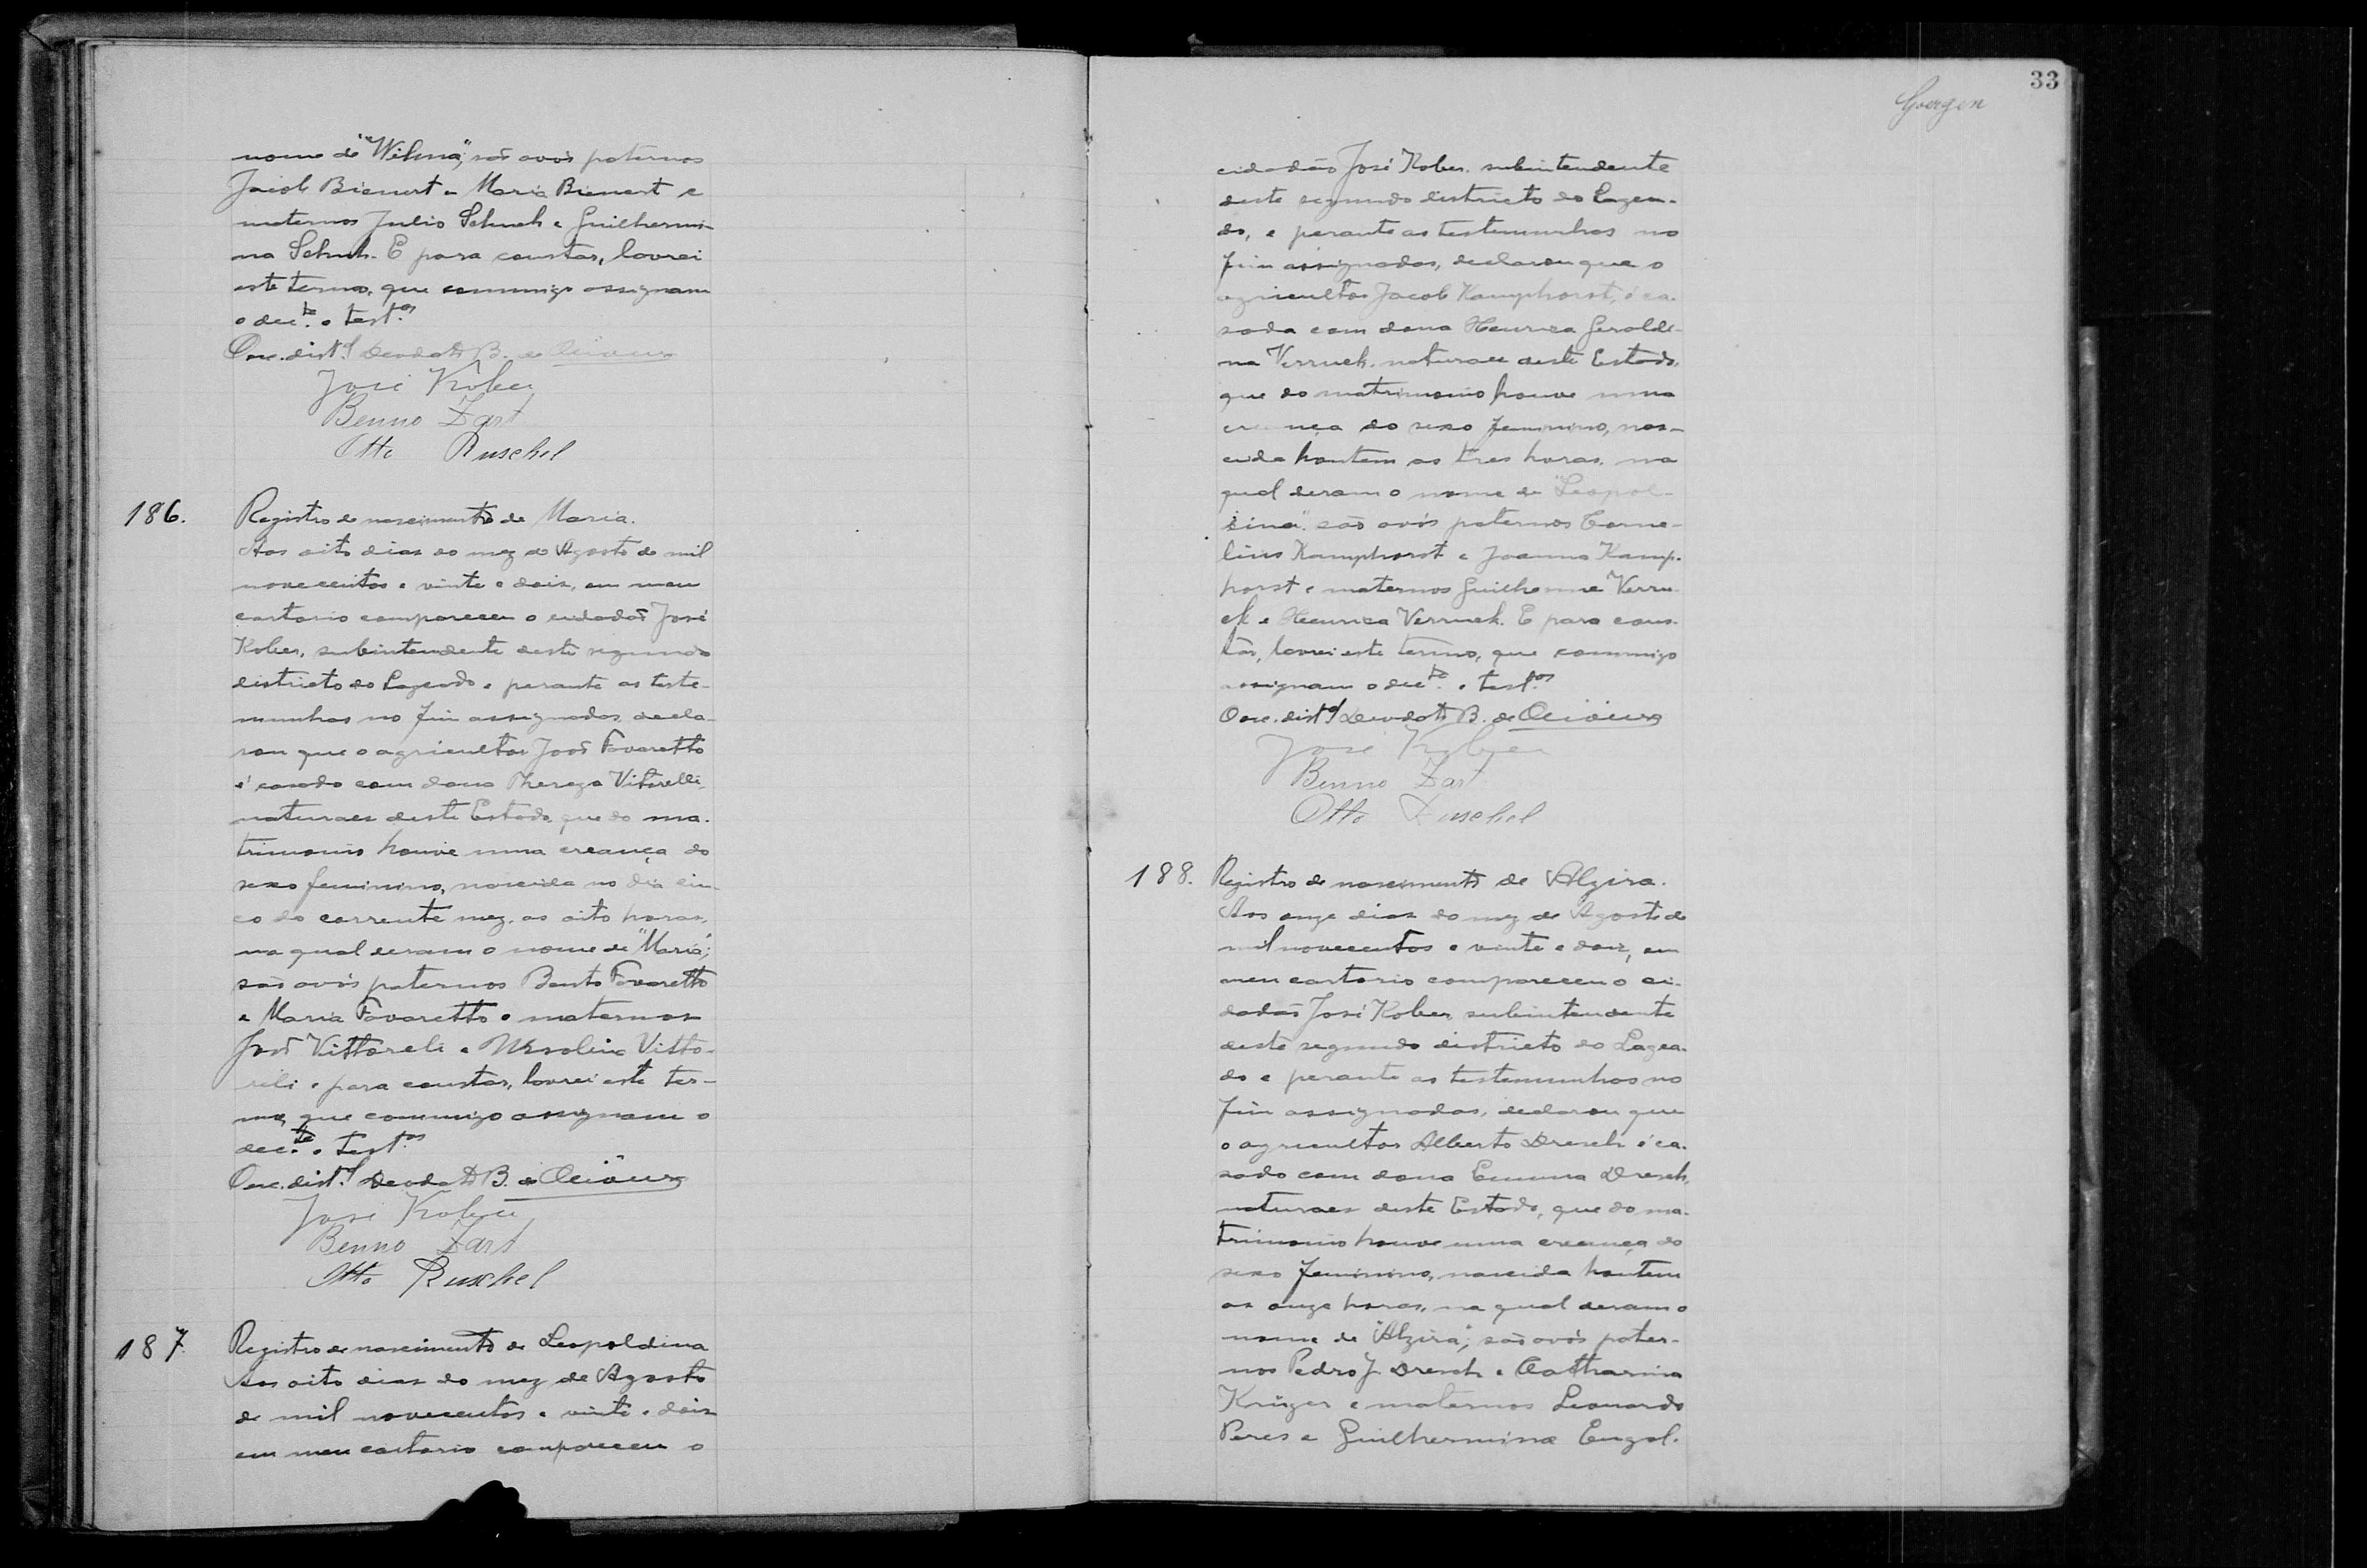 nome de "Wilma"; são avós paternos
Jacob Bienert e Maria Bienert e
maternos Julio Schuch e Guilhermi-
na Schuch. E para constar, lavrei
este termo, que commigo assignam
o decte. e testas.
O esc. distal. Deodato B. de
José Kober
Benno Zart
Otto Ruschel
186.
Registro de nascimento de Maria.
Aos oito dias do mez de Agosto de mil
novecentos e vinte e dois, em meu
cartorio compareceu o cidadão José
Kober, subintendente deste segundo
districto do Lageado e perante as teste-
munhas no fim assignadas, decla-
rou que o agricultor João Favaretto
é casado com dona Thereza Vitorelli,
naturaes deste Estado, que do ma-
trimonio houve uma creança do
sexo feminino, nascida no dia cin-
co do corrente mez, as oito horas,
na qual deram o nome de "Maria";
são avós paternos Bento Favaretto
e Maria Favaretto e maternos
João Vittoreli e Ursolina Vitto-
reli e para constar, lavrei este ter-
mo, que commigo assignam o
decte. e testas.
O esc. distal. Deodato B. de
José Kober
Benno Zart
Otto Ruschel
187.
Registro de nascimento de Leopoldina
Aos oito dias do mez de Agosto
de mil novecentos e vinte e dois
em meu cartorio compareceu o
33
Goergen
cidadão José Kober, subintendente
deste segundo districto do Lagea-
do, e perante as testemunhas no
fim assignadas, declarou que o
agricultor Jacob Kamphorst, é ca-
sado com dona Henrica Geraldi-
na Verruck, naturaes deste Estado,
que do matrimonio houve uma
creança do sexo feminino, nas-
cida hontem as tres horas, na
qual deram o nome de "Leopol-
dina". são avós paternos Corne-
lius Kamphorst e Joanna Kamp-
horst e maternos Guilherme Verru-
ck e Henrica Verruck. E para cons-
tar, lavrei este termo, que commigo
assignam o decte. e testas.
O esc. distal. Deodato B. de
José Kober
Benno Zart
Otto Ruschel
188.
Registro de nascimento de Alzira.
Aos onze dias do mez de Agosto de
mil novecentos e vinte e dois, em
meu cartorio compareceu o ci-
dadão José Kober, subintendente
deste segundo districto do Lagea-
do e perante as testemunhas no
fim assignadas, declarou que
o agricultor Alberto Dresch é ca-
sado com dona Emma Dresch,
naturaes deste Estado, que do ma-
trimonio houve uma creança do
sexo feminino, nascida hontem
as onze horas, na qual deram o
nome de "Alzira"; são avós pater-
nos Pedro J. Dresch e Catharina
Krüger e maternos Leonardo
Peres e Guilhermina Engel.